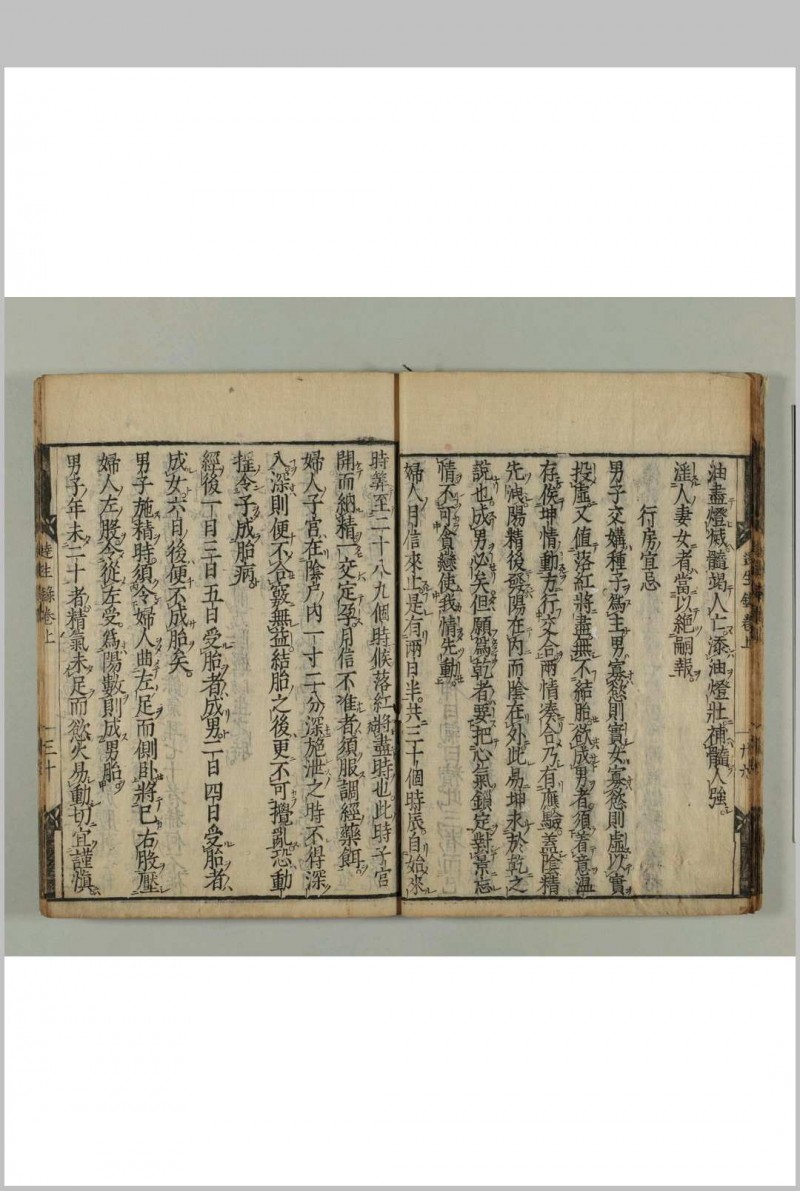 油盡燈滅髓竭人亡添油燈壯補髓人強
淫人妻女者當以絕嗣報
行房宜忌
男子交媾種子為主男寡慾則實女寡慾則虛以實
投虛又值落紅將盡無不結胎欲成男者須着意溫
存俟坤情動方行交合兩情湊合乃有應驗蓋陰精
先洩陽精後發陽在內而陰在外此易坤求於乾之
說也成男必矣但願為乾者要把心氣鎖定對景忘
情不可貪戀使我情先動
婦人月信來止是有兩日半共三十個時辰自始來
達生錄卷上
時筭至二十八九個時候落紅將盡時也此時子宮
開而納精一交定孕月信不准者須服調經藥餌
婦人子宮在陰戶內一寸二分深施泄之時不得深
入深則便不合竅無益結胎之後更不可攪亂恐動
搖令子成胎病
經後一日三日五日受胎者成男二日四日受胎者
成女六日後便不成胎矣
男子施精時須令婦人曲左足而側臥將已右股壓
婦人左股令從左受為陽數則成男胎
男子年未二十者精氣未足而慾火易動切宜謹慎
達生錄卷上
三十